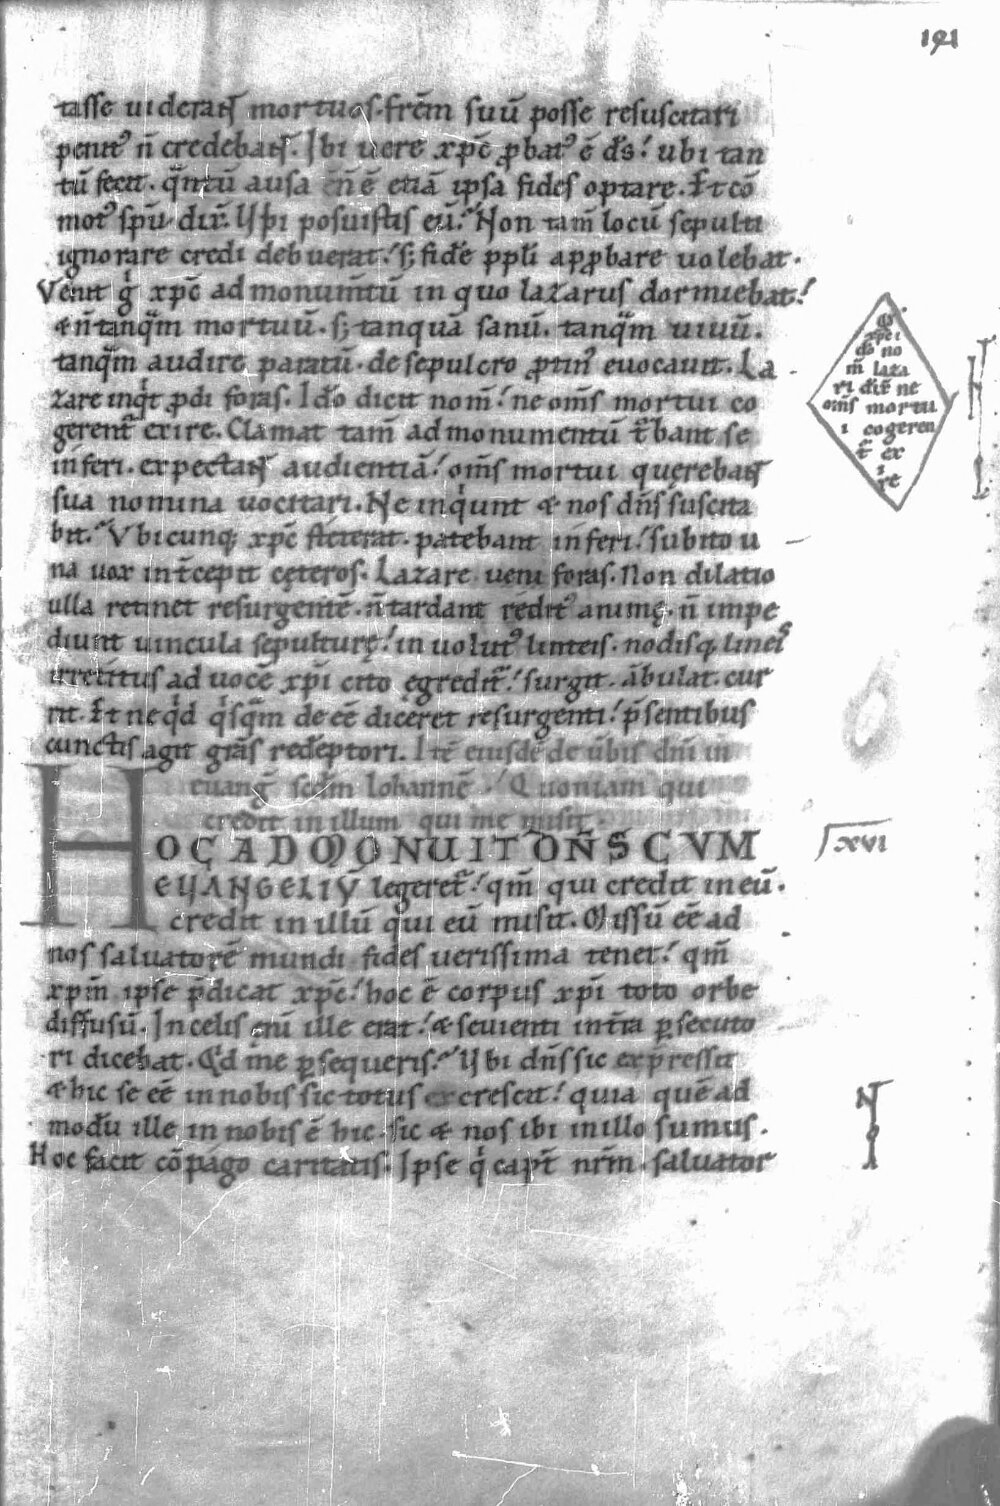 191
tasse uiderant mortuos. frēm suū posse resuscitari
penit᷒ n̄ credebant. Ibi uere xp̄c ꝓbat᷒ ē d̄s. ubi tan
tū fecit. q̄ntū ausa n̄ ē etiā ipsa fides optare. Et cō
mot᷒ sp̄u dix̄. Vbi posuistis eū? Non tam̄ locū sepulti
ignorare credi debuerat. s; fidē ppl̄i apꝓbare uolebat.
Venit g̊ xp̄c ad monum̄tū in quo lazarus dormiebat.
& n̄ tanq̄m mortuū. s; tanquā sanū. tanq̄m uiuū.
tanq̄m audire paratū. de sepulcro ꝓtin᷒ euocauit. La
zare inq̇t ꝓdi foras. Ido dicit nom̄. ne om̄s mortui co
gerent᷑ exire. Clamat tam̄ ad monumentū t᷑bant se
inferi. expectant audientiā. om̄s mortui querebant
sua nomina uocitari. Ne inq̇unt & nos dn̄s suscita
bit. Vbicunq; xp̄c steterat. patebant inferi. subito u
na uox int̄cepit cęteros. Lazare ueni foras. Non dilatio
ulla retinet resurgentē. n̄ tardant redit᷒ animę. n̄ impe
diunt uincula sepulturę. inuolut᷒ linteis. nodisq; lineis
irretitus ad uocē xp̄i cito egredit᷑. surgit. ābulat. cur
rit. Et ne q̇d q̇sq̄m deeē diceret resurgenti. p̄sentibus
cunctis agit grās redēptori. Itē eiusdē de ūbis dn̄i in
euanḡ scd̄m Iohannē. Quoniam qui
credit in illum qui me misit
HOC ADMONUIT DN̄S CVM
EUANGELIV̄ legeret᷑. qm̄ qui credit in eū.
credit in illū qui eū misit. Missū eē ad
nos saluatorē mundi fides uerissima tenet. qm̄
xp̄m ipse p̄dicat xp̄c. hoc ē corpus xp̄i toto orbe
diffusū. In celis eni ille erat. & seuienti in t̄ra ꝑsecuto
ri dicebat. Q̇d me ꝑsequeris? Vbi dn̄s sic expressit
& hic se eē in nobis sic totus excrescit. quia quē ad
modū ille in nobis ē hic. sic & nos ibi in illo sumus.
Hoc facit cōpago caritatis. Ipse q̇ cap̄t nr̄m. saluator
xp̄c i
do no
m̄ laza
ri dix̄ ne
om̄s mortu
i cogeren
t᷑ ex
i
re
XVI